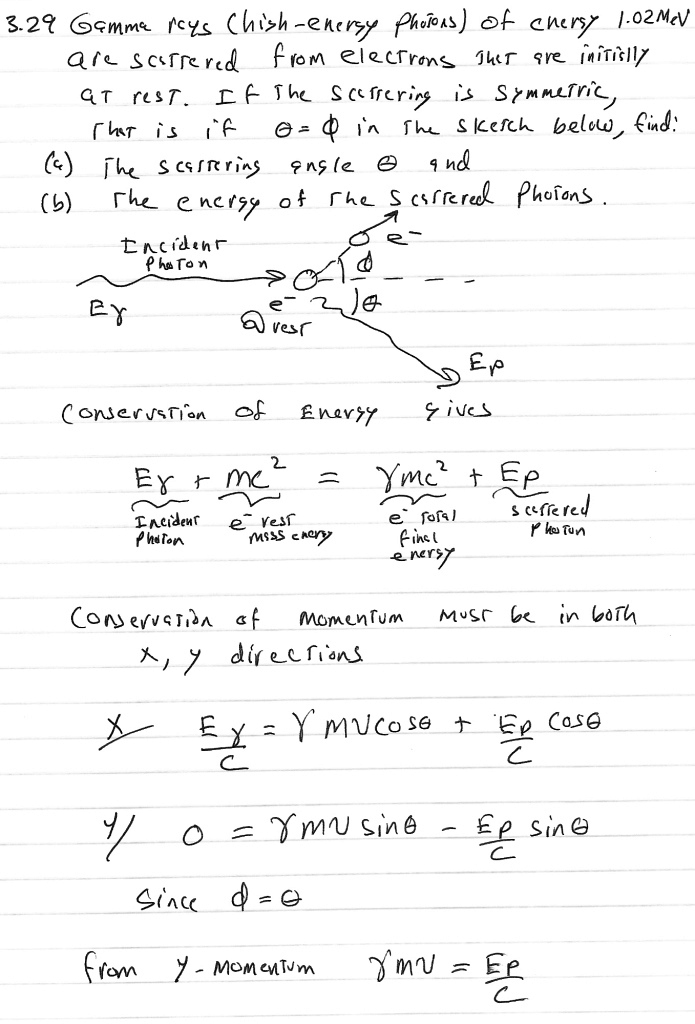 3.29 Gamma rays (high-energy photons) of energy 1.02 MeV
are scattered from electrons that are initially
at rest. If the scattering is symmetric,
that is if θ = ϕ in the sketch below, find:
(a) The scattering angle θ and
(b) The energy of the scattered photons.
Incident
Photon
Eγ
e⁻
@ rest
e⁻
ϕ
θ
Ep
Conservation of Energy gives
Eγ + mc² = γmc² + Ep
Incident Photon
e⁻ rest mass energy
e⁻ total final energy
scattered photon
Conservation of momentum must be in both
x, y directions
x/ Eγ/c = γmvcosθ + Ep/c cosθ
y/ 0 = γmv sinθ - Ep/c sinθ
Since ϕ = θ
from y-momentum γmv = Ep/c